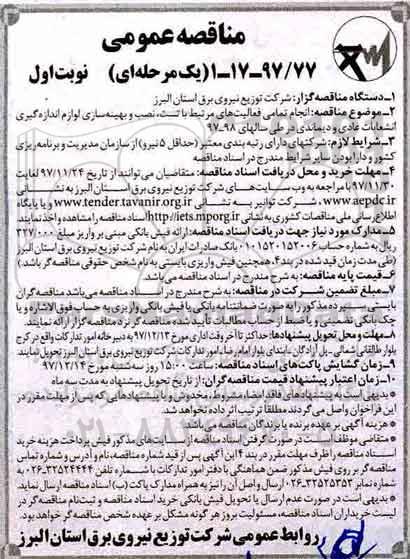 مناقصه عمومی
۱-۱۷-۹۷/۷۷ (یک مرحله‌ای) نوبت اول
۱-دستگاه مناقصه‌گزار: شرکت توزیع نیروی برق استان البرز
۲-موضوع مناقصه: انجام تمامی فعالیت‌های مرتبط با تست، نصب و بهینه‌سازی لوازم اندازه‌گیری
انشعابات عادی و دیماندی در طی سالهای ۹۸-۹۷
۳-شرایط لازم: شرکتهای دارای رتبه بندی معتبر (حداقل ۵ نیرو) از سازمان مدیریت و برنامه‌ریزی
کشور و دارا بودن سایر شرایط مندرج در اسناد مناقصه
۴-مهلت خرید و محل دریافت اسناد مناقصه: متقاضیان می‌توانند از تاریخ ۹۷/۱۱/۲۴ لغایت
۹۷/۱۱/۳۰ با مراجعه به وب سایت‌های شرکت توزیع نیروی برق استان البرز به نشانی
www.aepdc.ir، شرکت توانیر به نشانی www.tender.tavanir.org.ir و یا پایگاه
اطلاع‌رسانی ملی مناقصات کشوری به نشانی http://iets.mporg.ir اسناد مناقصه را مشاهده و اخذ نمایند
۵-مدارک مورد نیاز جهت دریافت اسناد مناقصه: ارائه فیش بانکی مبنی بر واریز مبلغ ۳۲۷/۰۰۰
ریال به شماره حساب ۰۱۰۱۵۲۰۱۵۲۰۰۶ بانک صادرات ایران به نام شرکت توزیع نیروی برق استان البرز
(طی مدت زمان قید شده در بند ۴، همچنین فیش واریزی بایستی به نام شخص حقوقی مناقصه‌گر باشد.)
۶-قیمت پایه مناقصه: به شرح مندرج در اسناد مناقصه می‌باشد
۷-مبلغ تضمین شرکت در مناقصه: به شرح مندرج در اسناد مناقصه می‌باشد مناقصه‌گران
بایستی سپرده مذکور را به صورت ضمانتنامه بانکی یا فیش بانکی واریزی به حساب فوق‌الاشاره و یا
چک بانکی تضمینی و یا ضبط از حساب مطالبات تأیید شده مناقصه‌گر نزد مناقصه‌گزار ارائه نمایند.
۸-مهلت و محل تحویل پیشنهادها: حداکثر تا آخر وقت اداری مورخ ۹۷/۱۲/۱۳ به دبیرخانه امور تدارکات واقع در کرج
بلوار طالقانی شمالی - پل آزادگان - ابتدای بلوار امام رضا - امور تدارکات شرکت توزیع نیروی برق استان البرز تحویل نمایند.
۹-زمان گشایش پاکت‌های اسناد مناقصه: ساعت ۱۵:۰۰ روز سه شنبه مورخ ۹۷/۱۲/۱۴
۱۰-زمان اعتبار پیشنهاد قیمت مناقصه‌گران: از تاریخ تحویل پیشنهاد به مدت سه ماه
* بدیهی است به پیشنهادهای فاقد امضا، مشروط، مخدوش و یا پیشنهادهایی که پس از مهلت مقرر در
این فراخوان واصل می‌گردند مطلقا ترتیب اثر داده نخواهد شد.
* هزینه آگهی بر عهده برنده یا برندگان مناقصه می‌باشد
* متقاضی موظف است در صورت گرفتن اسناد مناقصه از سایت‌های مذکور فیش پرداخت هزینه خرید
اسناد مناقصه را ظرف مهلت مقرر در بند ۴ این آگهی پس از قید شماره مناقصه، نام و آدرس و شماره تماس
مناقصه‌گر بر روی فیش مذکور ضمن هماهنگی با دفتر امور تدارکات با شماره تلفن ۳۲۵۲۴۴۴۴-۰۲۶ به
شماره نمابر ۳۲۵۲۵۳۵۳-۰۲۶ ارسال و اصل آن را نیز به همراه مدارک پاکت (ب) اسناد مناقصه ارسال نماید.
* بدیهی است در صورت عدم ارسال یا تحویل فیش بانکی خرید اسناد مناقصه و ثبت نام مناقصه‌گر در
لیست خریداران اسناد مناقصه، مسئولیت بروز هر گونه مشکل بر عهده شخص مناقصه‌گر خواهد بود.
روابط عمومی شرکت توزیع نیروی برق استان البرز